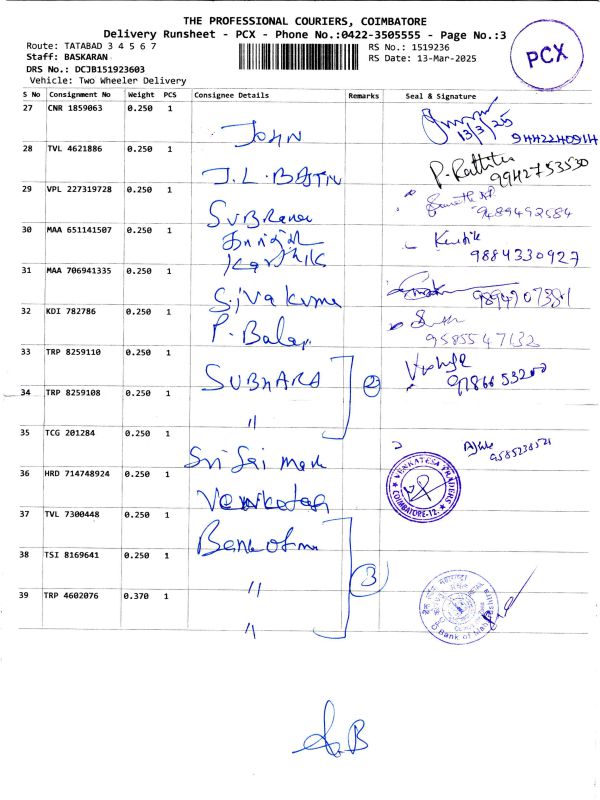 THE PROFESSIONAL COURIERS, COIMBATORE
Delivery Runsheet - PCX - Phone No.:0422-3505555 - Page No.:3
Route: TATABAD 3 4 5 6 7
RS No.: 1519236
Staff: BASKARAN
RS Date: 13-Mar-2025
DRS No.: DCJB151923603
Vehicle: Two Wheeler Delivery
PCX
S No Consignment No Weight PCS Consignee Details Remarks Seal & Signature
27 CNR 1859063 0.250 1
JOHN
13/3/25
28 TVL 4621886 0.250 1
J.L.
9942753530
29 VPL 227319728 0.250 1
9489492584
30 MAA 651141507 0.250 1
Karthik
9884330927
31 MAA 706941335 0.250 1
Sivakuma
32 KDI 782786 0.250 1
P. Balaji
9585547132
33 TRP 8259110 0.250 1
SUBHARA
2
34 TRP 8259108 0.250 1
"
35 TCG 201284 0.250 1
Sri Sai
VENKATESA TRADERS
COIMBATORE-12.
36 HRD 714748924 0.250 1
Venkatesa
37 TVL 7300448 0.250 1
Bank of
38 TSI 8169641 0.250 1
"
3
39 TRP 4602076 0.370 1
"
Bank of